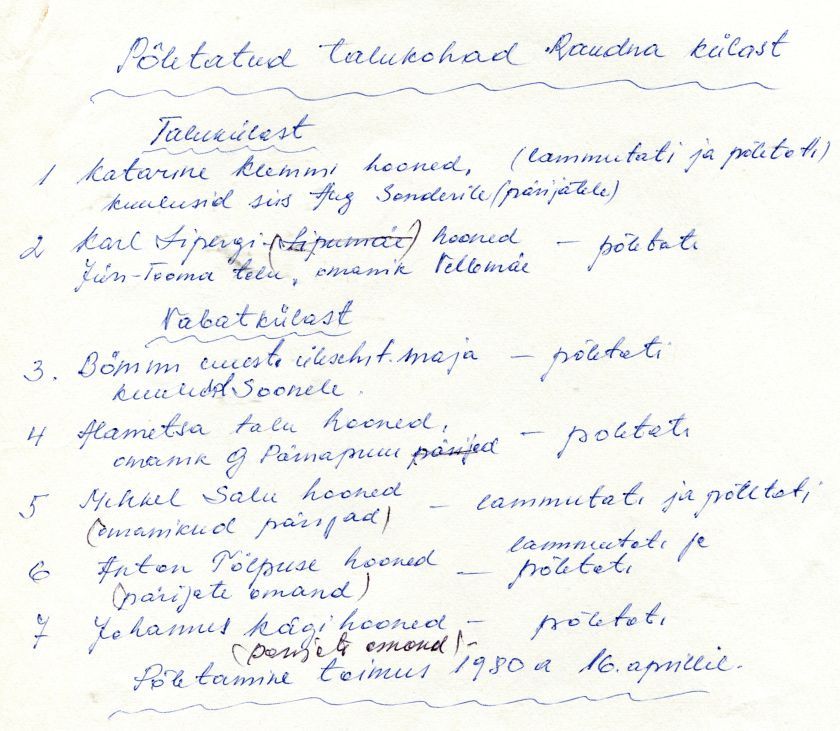 Põletatud talukohad Raudna külast
Talukülast
1 Katarine Klemmi hooned, (lammutati ja põletati)
kuulusid siis Aug Sonderile (pärijatele)
2 Karl Sipergi (Sipumäe) hooned — põletati
Jüri-Tooma talu, omanik Vellomäe
Vabatkülast
3. Bömmi maja — põletati
Soonele.
4 Alametsa talu hooned, — poletati
omanik Pärnapuu pärijad
5 Mihkel Salu hooned — lammutati ja põletati
(omanikud pärijad)
6 Anton Tõlpuse hooned — lammutati ja
(pärijate omand) põletati
7 Johannes Kägi hooned — põletati
(parijate omand) -
Põletamine toimus 1980 a 16. aprillil.